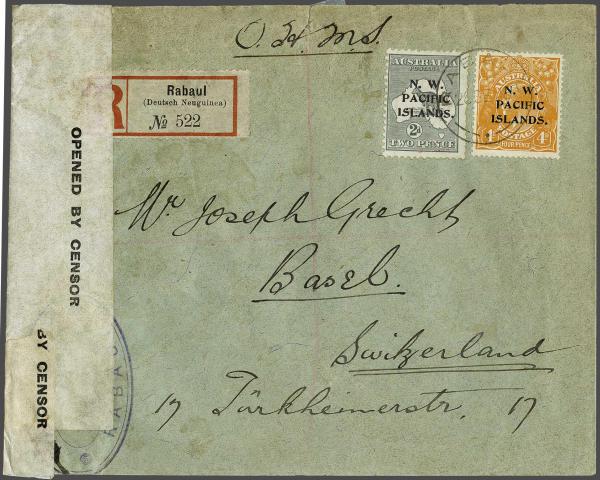 O.H.M.S.
R
Rabaul
(Deutsch Neuguinea)
№ 522
AUSTRALIA
POSTAGE
N. W.
PACIFIC
ISLANDS.
2d
TWO PENCE
AUSTRALIA
N. W.
PACIFIC
ISLANDS.
POSTAGE
4d
FOUR PENCE
OPENED BY CENSOR
BY CENSOR
RABAU
Mr Joseph Grecht
Basel.
Switzerland
17 Türkheimerstr. 17